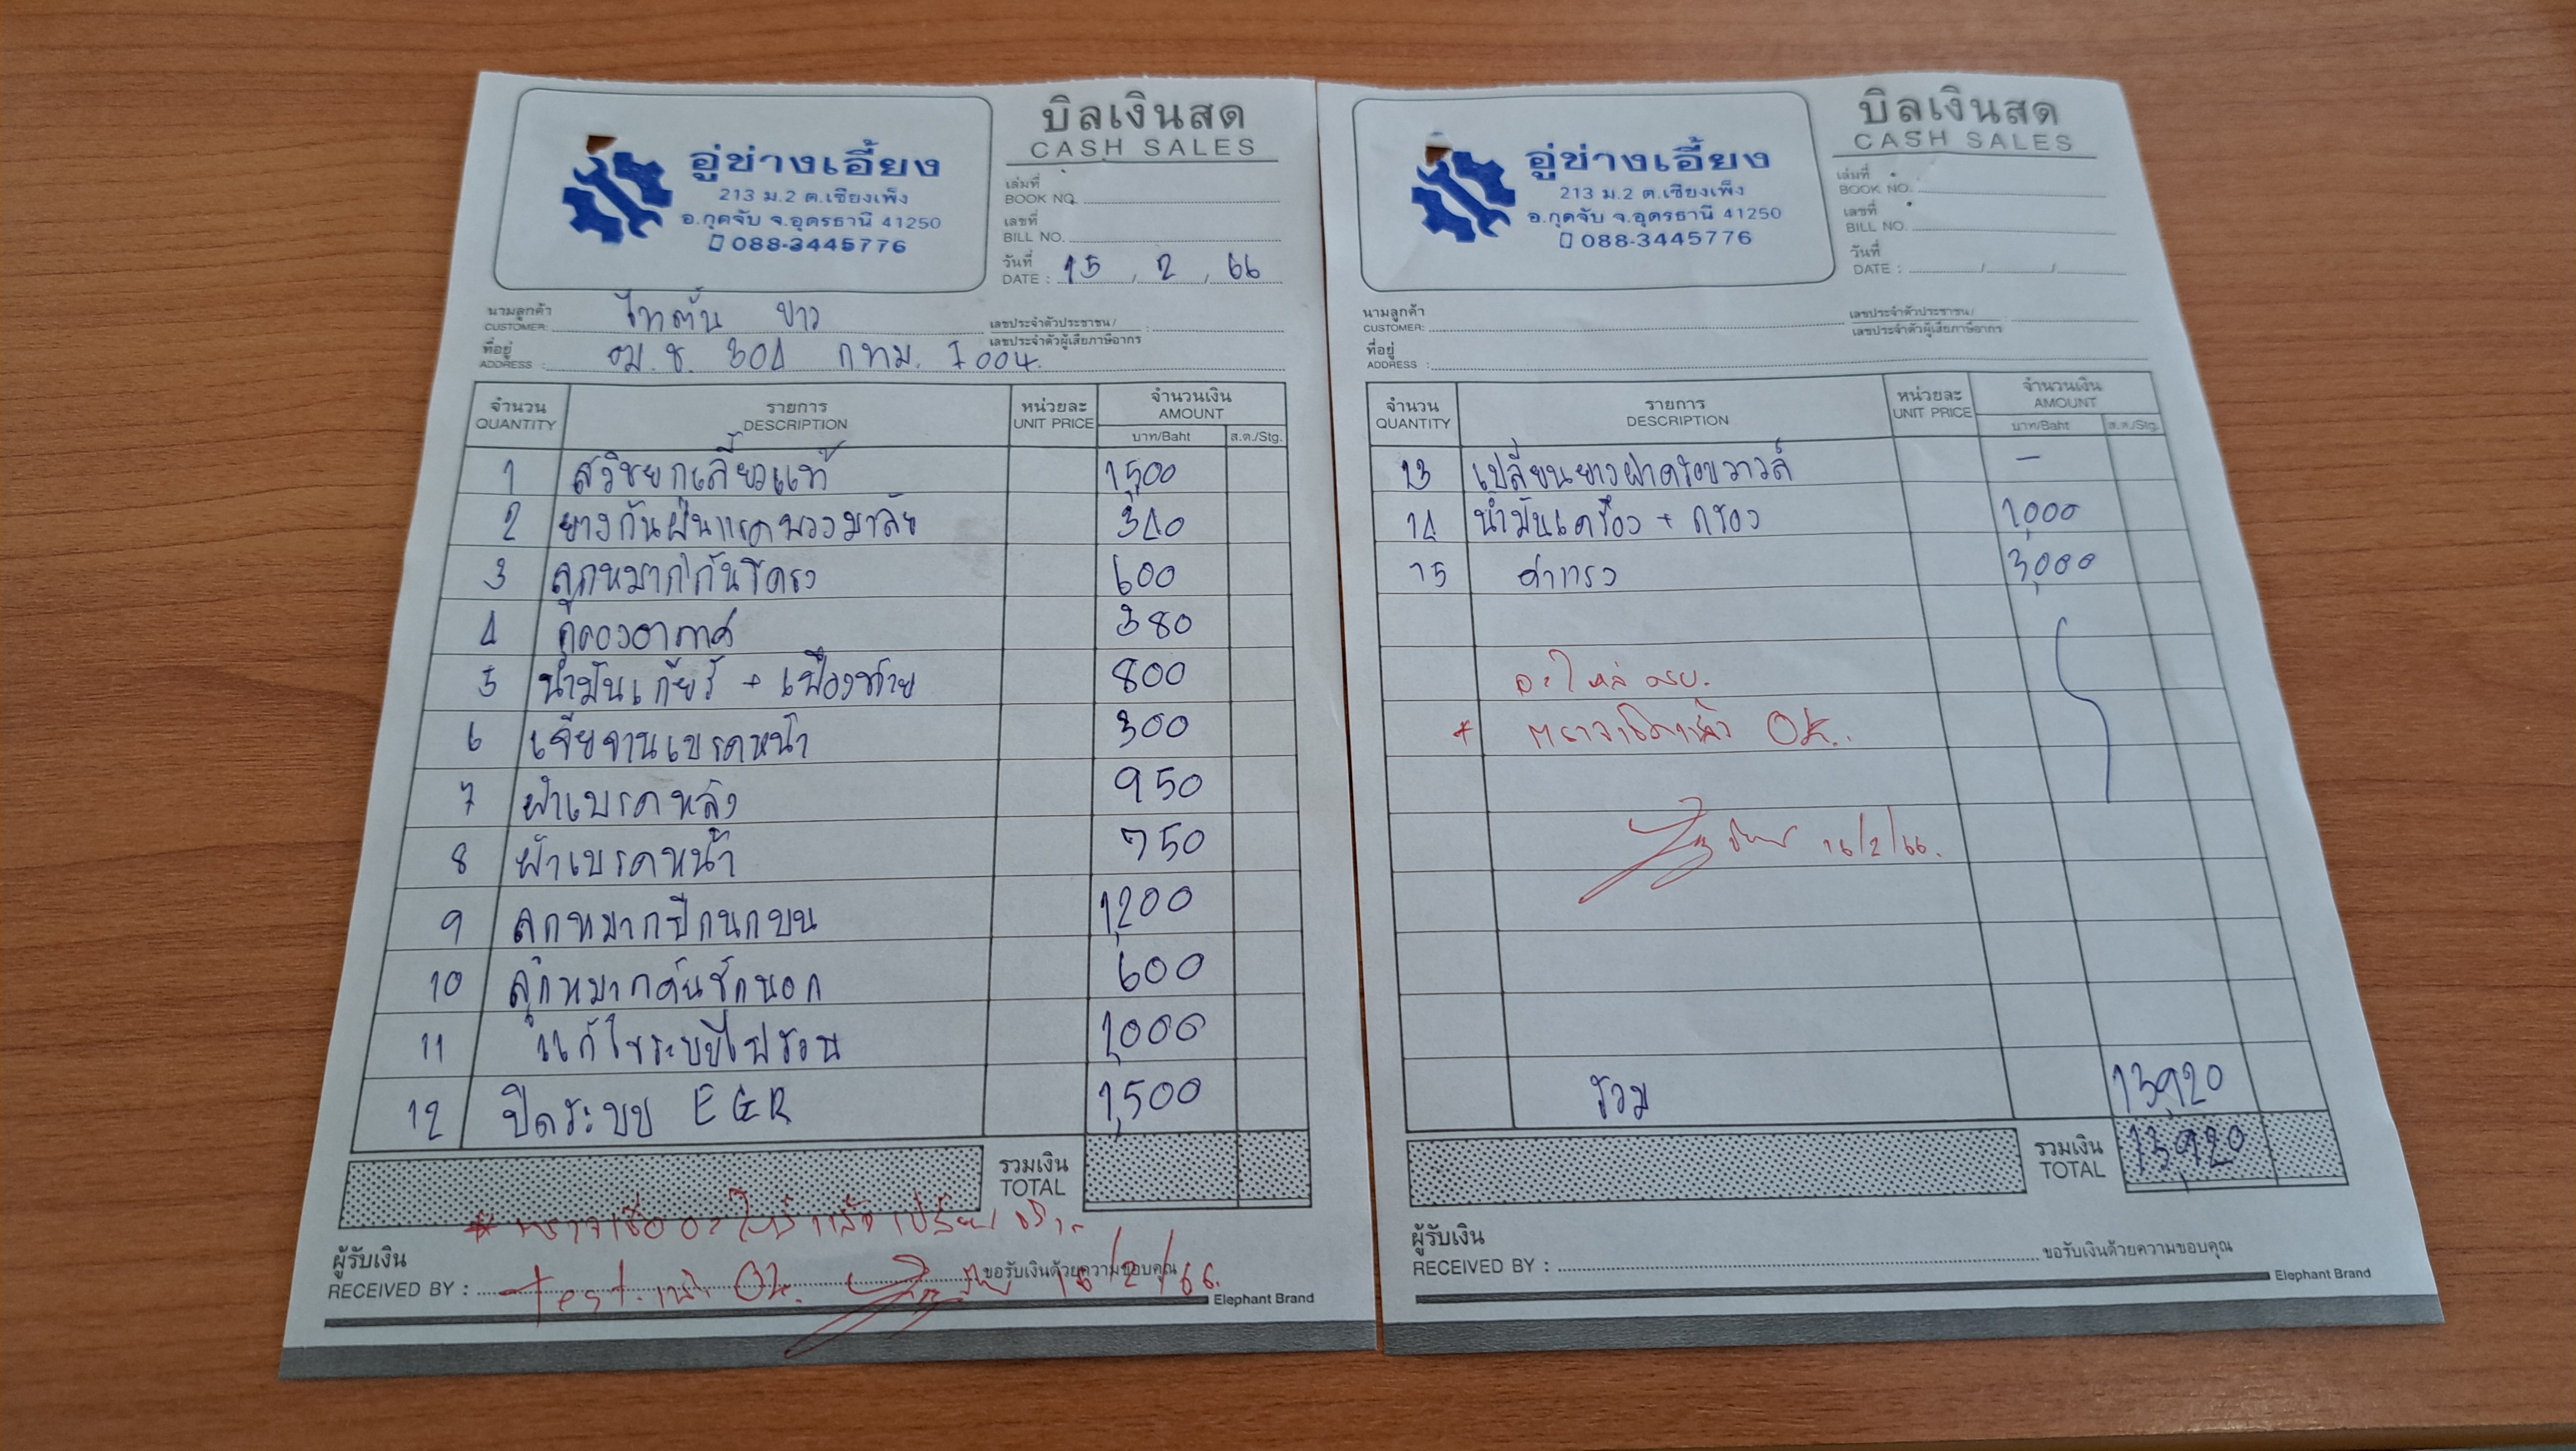 อู่ข่างเอี้ยง
213 ม.2 ต.เชียงเพ็ง
อ.กุดจับ จ.อุดรธานี 41250
088-3445776
บิลเงินสด
CASH SALES
เล่มที่
BOOK NO.
เลขที่
BILL NO.
วันที่
DATE : 15 / 2 / 66
นามลูกค้า
CUSTOMER: ไทตัน ขาว
เลขประจำตัวประชาชน/
เลขประจำตัวผู้เสียภาษีอากร
ที่อยู่
ADDRESS : อม.ช. 304 กทม. 7004.
จำนวน รายการ หน่วยละ จำนวนเงิน
QUANTITY DESCRIPTION UNIT PRICE AMOUNT
บาท/Baht ส.ต./Stg.
1 สวิชยกเลี้ยวแท้ 1,500
2 ยางกันฝุ่นแรคพวงมาลัย 340
3 ลูกหมากกันโครง 600
4 กรองอากาศ 380
5 น้ำมันเกียร์ + เฟืองท้าย 800
6 เจียจานเบรคหน้า 300
7 ผ้าเบรคหลัง 950
8 ผ้าเบรคหน้า 750
9 ลูกหมากปีกนกบน 1,200
10 ลูกหมากคันชักนอก 600
11 แก้ไขระบบไฟรอบ 1,000
12 ปิดระบบ EGR 1,500
รวมเงิน
TOTAL
* ตรวจเช็คอะไหล่แล้วเปลี่ยนจริง
ผู้รับเงิน
RECEIVED BY : Test. แล้ว Ok. 16/2/66.
ขอรับเงินด้วยความขอบคุณ
Elephant Brand
อู่ข่างเอี้ยง
213 ม.2 ต.เชียงเพ็ง
อ.กุดจับ จ.อุดรธานี 41250
088-3445776
บิลเงินสด
CASH SALES
เล่มที่
BOOK NO.
เลขที่
BILL NO.
วันที่
DATE : / /
นามลูกค้า
CUSTOMER:
เลขประจำตัวประชาชน/
เลขประจำตัวผู้เสียภาษีอากร
ที่อยู่
ADDRESS :
จำนวน รายการ หน่วยละ จำนวนเงิน
QUANTITY DESCRIPTION UNIT PRICE AMOUNT
บาท/Baht ส.ต./Stg.
13 เปลี่ยนยางฝาครอบวาวล์ –
14 น้ำมันเครื่อง + กรอง 1,000
15 ค่าแรง 3,000
อะไหล่ ครบ.
* ตรวจเช็คแล้ว Ok.
16/2/66.
รวม 13,920
รวมเงิน
TOTAL 13,920
ผู้รับเงิน
RECEIVED BY :
ขอรับเงินด้วยความขอบคุณ
Elephant Brand